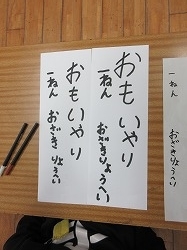 おもいやり
一ねん おざきりょうへい
おもいやり
一ねん おざきりょうへい
一ねん おざきりょうへい